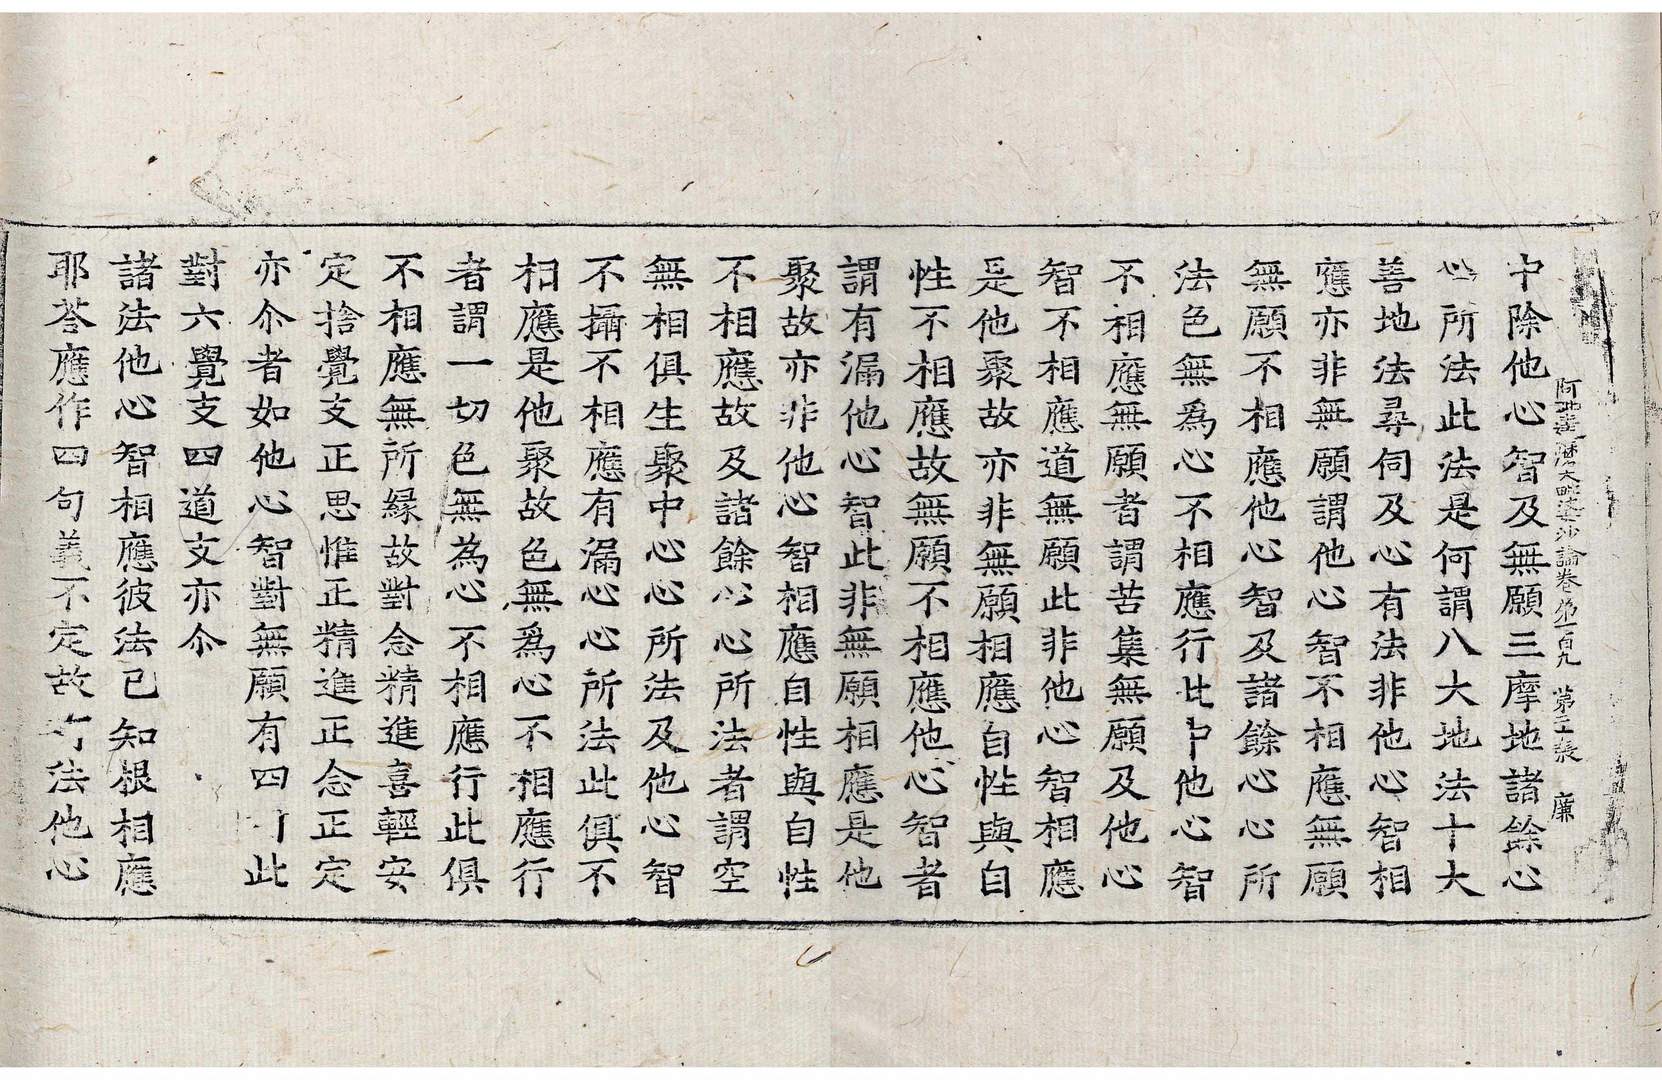 阿毗達磨大毗婆沙論卷第一百九 第二張 廉
中除他心智及無願三摩地諸餘心
心所法此法是何謂八大地法十大
善地法尋伺及心有法非他心智相
應亦非無願謂他心智不相應無願
無願不相應他心智及諸餘心心所
法色無爲心不相應行此中他心智
不相應無願者謂苦集無願及他心
智不相應道無願此非他心智相應
是他聚故亦非無願相應自性與自
性不相應故無願不相應他心智者
謂有漏他心智此非無願相應是他
聚故亦非他心智相應自性與自性
不相應故及諸餘心心所法者謂空
無相俱生聚中心心所法及他心智
不攝不相應有漏心心所法此俱不
相應是他聚故色無爲心不相應行
者謂一切色無爲心不相應行此俱
不相應無所緣故對念精進喜輕安
定捨覺支正思惟正精進正念正定
亦尒者如他心智對無願有四句此
對六覺支四道支亦尒
諸法他心智相應彼法已知根相應
耶荅應作四句義不定故有法他心